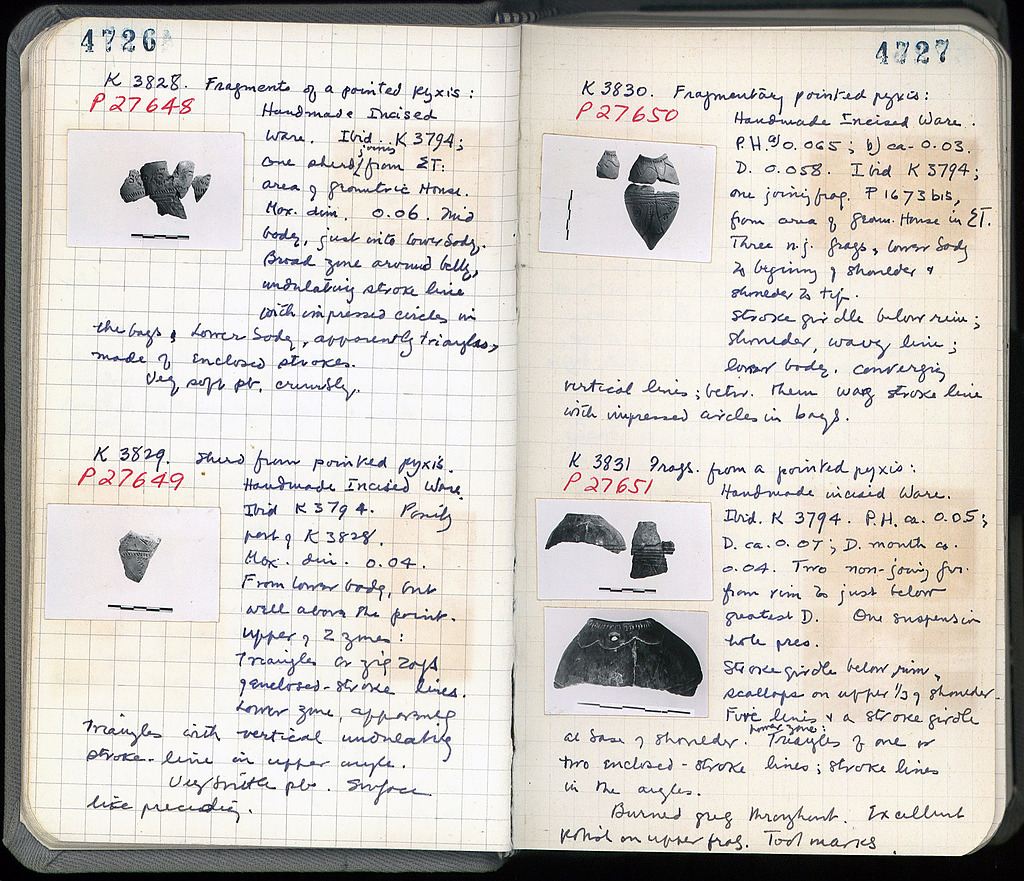 4726
K 3828. Fragments of a pointed pyxis:
P 27648
Handmade Incised
Ware. Ibid. K 3794;
joins
one sherd from ΣT:
area of geometric House.
Max. dim. 0.06. Mid
body, just into lower body.
Broad zone around belly,
undulating stroke line
with impressed circles in
the bays; Lower body, apparently triangles,
made of enclosed strokes.
Very soft pt. crumbly.
K 3829. Sherd from pointed pyxis.
P 27649
Handmade Incised Ware.
Ibid K 3794. Possibly
part of K 3828.
Max. dim. 0.04.
From lower body, but
well above the point.
upper of 2 zones:
Triangles or zig zags
of enclosed-stroke lines.
Lower zone, apparently
triangles with vertical undulating
stroke-line in upper angle.
Very brittle pt. Surface
like preceding.
4727
K 3830. Fragmentary pointed pyxis:
P 27650
Handmade Incised Ware.
P.H. a) 0.065; b) ca. 0.03.
D. 0.058. Ibid K 3794;
one joining frag. P 1673 bis,
from area of Geom. House in ΣT.
Three n.j. frags, lower body
to beginning of shoulder &
shoulder to tip.
Stroke girdle below rim;
shoulder, wavy line;
lower body, converging
vertical lines; betw. them wavy stroke line
with impressed circles in bays.
K 3831 Frags. from a pointed pyxis:
P 27651
Handmade incised Ware.
Ibid. K 3794. P.H. ca. 0.05;
D. ca. 0.07; D. mouth ca.
0.04. Two non-joining frs.
from rim to just below
greatest D. One suspension
hole pres.
Stroke girdle below rim,
scallops on upper 1/3 of shoulder.
Five lines & a stroke girdle
at base of shoulder. Lower zone: Triangles of one or
two enclosed-stroke lines; stroke lines
in the angles.
Burned grey throughout. Excellent
polish on upper frag. Tool marks.